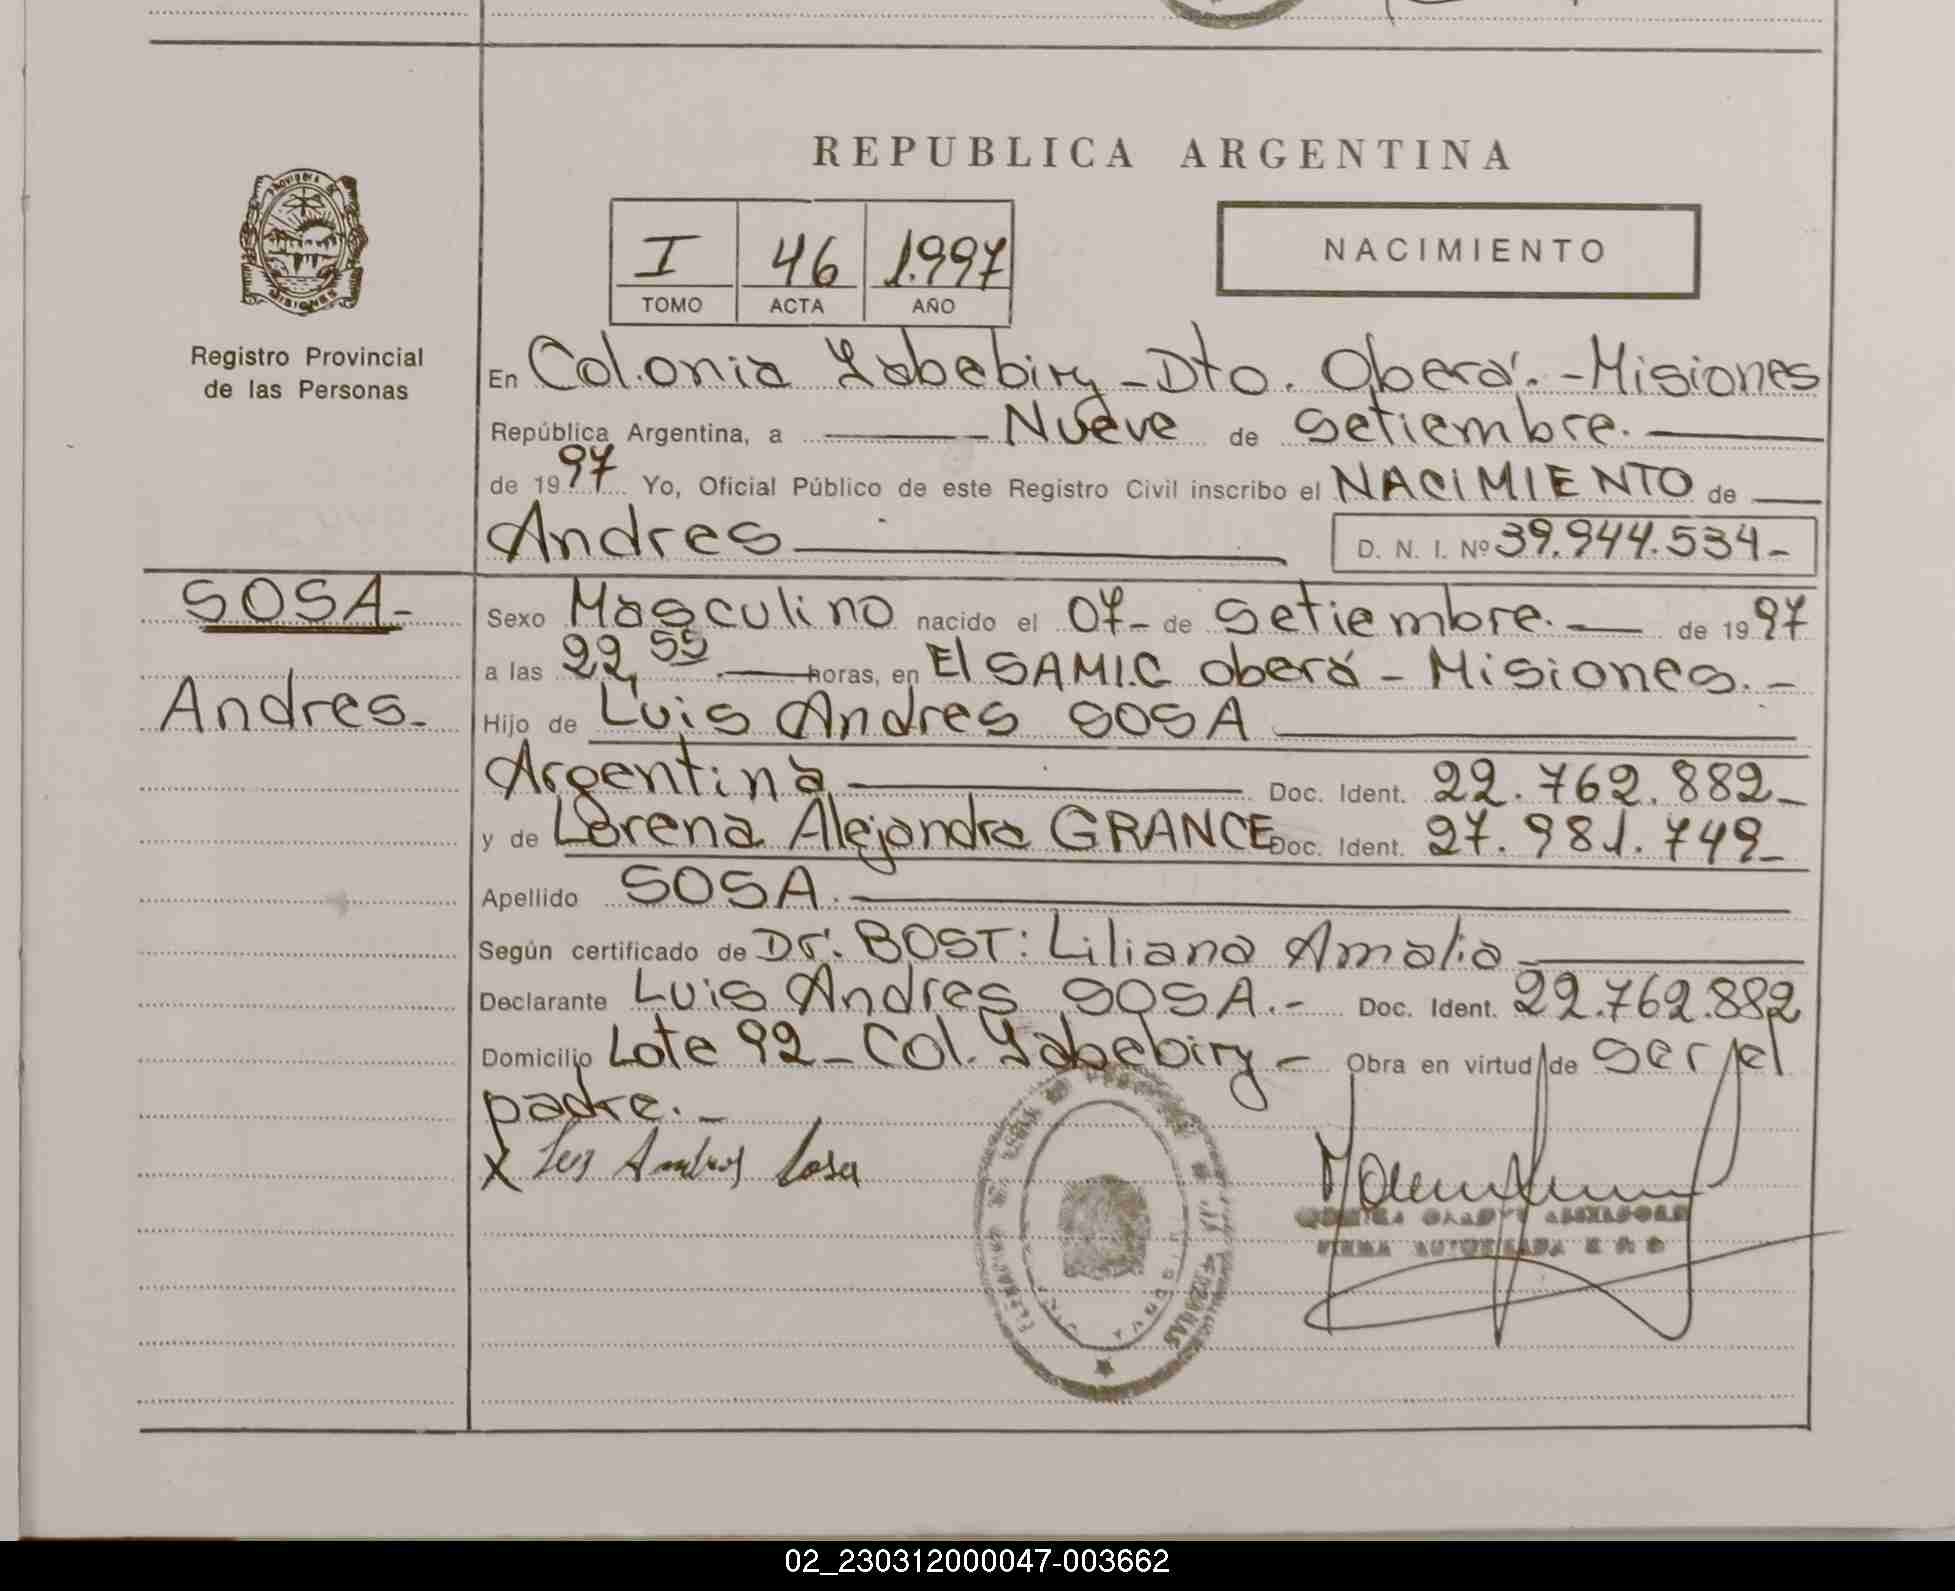 REPUBLICA ARGENTINA
I 46 1.997
TOMO ACTA AÑO
NACIMIENTO
Registro Provincial
de las Personas
En Colonia Yabebiry - Dto. Oberá. - Misiones
República Argentina, a Nueve de Setiembre.
de 1997 Yo, Oficial Público de este Registro Civil inscribo el NACIMIENTO de
Andres D. N. I. Nº 39.944.534-
SOSA-
Andres-
Sexo Masculino nacido el 07- de Setiembre. de 1997
a las 22,55 horas, en El SAMIC Oberá - Misiones. -
Hijo de Luis Andres SOSA
Argentina Doc. Ident. 22.762.882-
y de Lorena Alejandra GRANCE Doc. Ident. 27.981.749-
Apellido SOSA.
Según certificado de Dr: BOST: Liliana Amalia
Declarante Luis Andres SOSA.- Doc. Ident. 22.762.882
Domicilio Lote 92 - Col. Yabebiry - Obra en virtud de ser el
padre. -
X Luis Andres Sosa
FIRMA AUTORIZADA
02_230312000047-003662